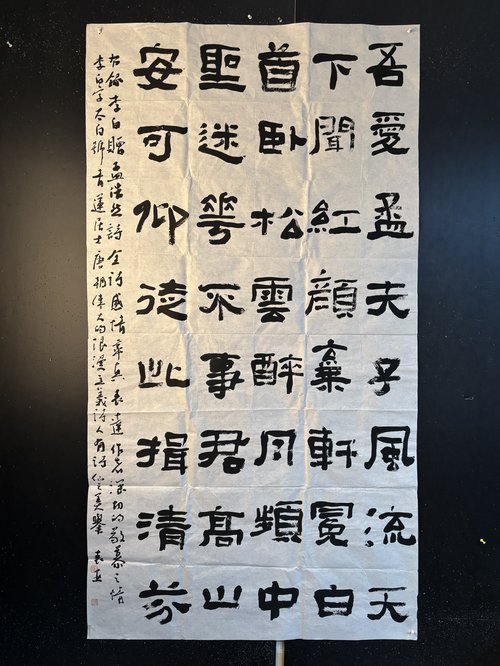 吾愛孟夫子風流天
下聞紅顏棄軒冕白
首卧松雲醉月頻中
聖迷華不事君高山
安可仰徒此揖清芬
右錄李白贈孟浩然詩全詩感情率真表達作者深切的敬慕之情
李白字太白號青蓮居士唐朝偉大的浪漫主義詩人有詩仙美譽